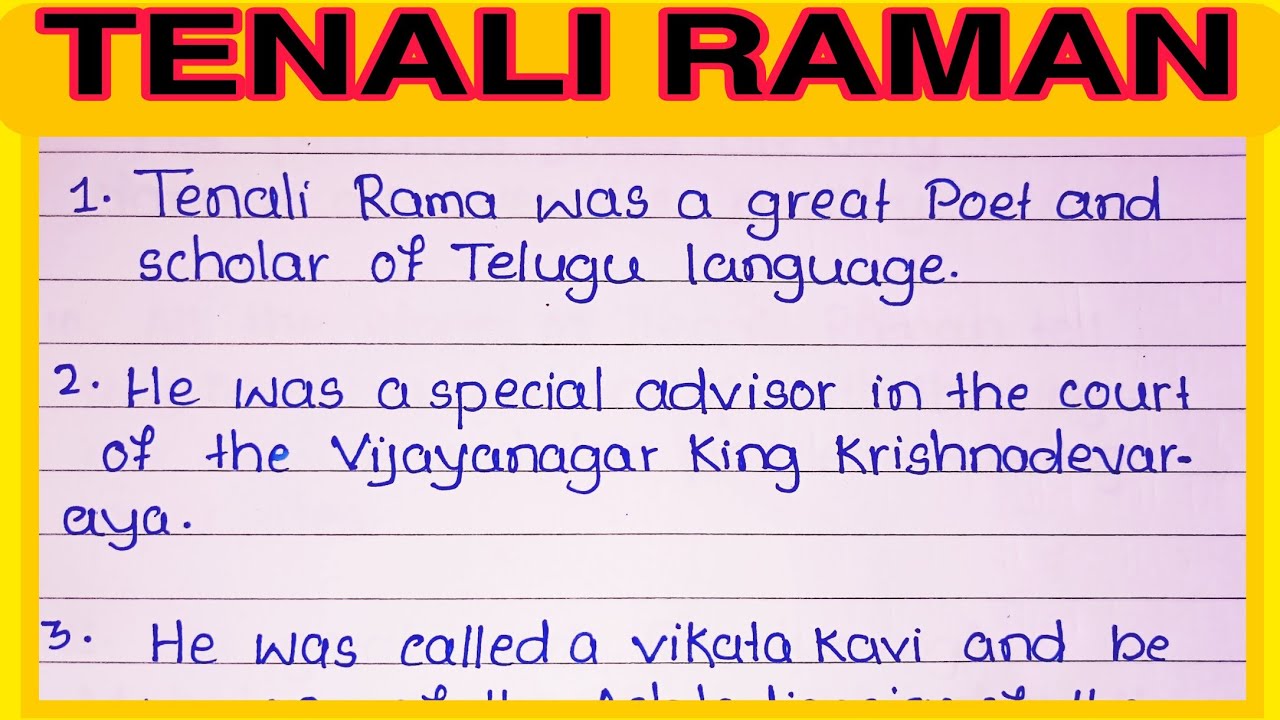 TENALI RAMAN
1. Tenali Rama was a great Poet and
scholar of Telugu language.
2. He was a special advisor in the court
of the Vijayanagar King Krishnadevar-
aya.
3. He was called a vikata kavi and be